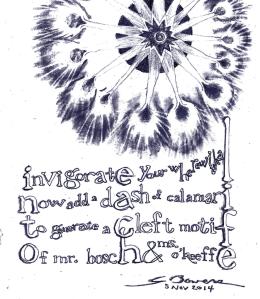 invigorate your wherewithal
now add a dash of calamari
to generate a cleft motif
of mr. bosch & ms. o'keeffe
S Bowers
3 NOV 2014